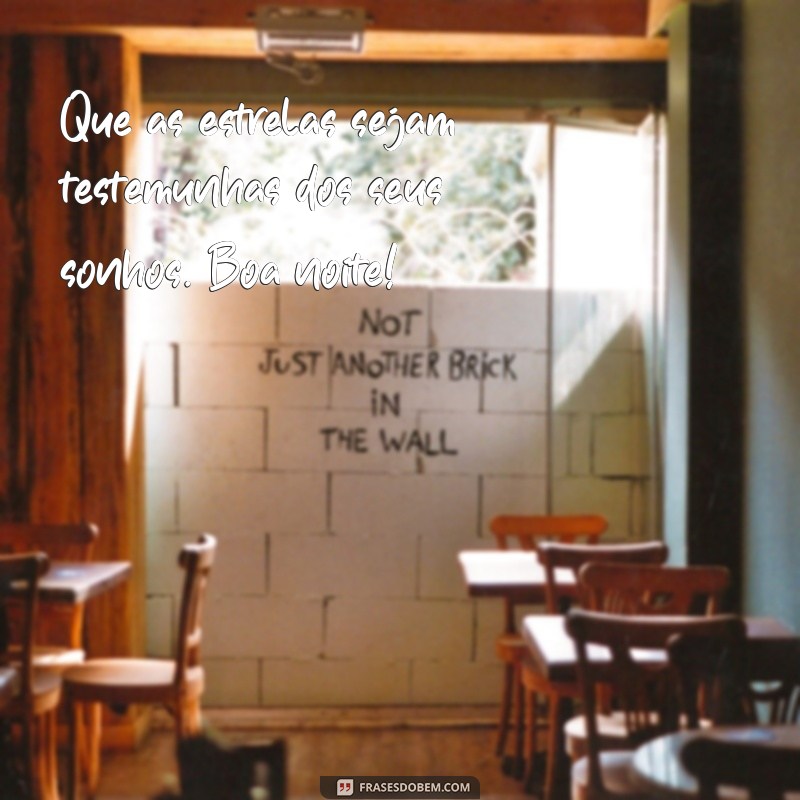 Que as estrelas sejam
testemunhas dos seus
sonhos. Boa noite!
NOT
JUST ANOTHER BRICK
iN
THE WALL
FRASESDOBEM.COM